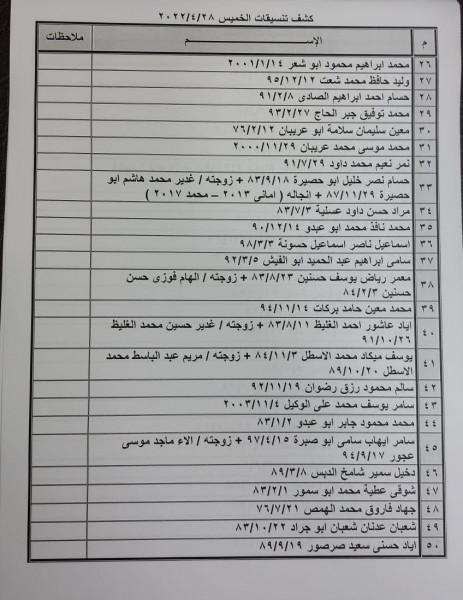 كشف تنسيقات الخميس ٢٠٢٢/٤/٢٨
م الإســـــم ملاحظات
٢٦ محمد ابراهيم محمود ابو شعر ٢٠٠١/١/١٤
٢٧ وليد حافظ محمد شعت ٩٥/١٢/١٢
٢٨ حسام احمد ابراهيم الصادى ٩١/٢/٨
٢٩ محمد توفيق جبر الحاج ٩٣/٢/٢٧
٣٠ معين سليمان سلامة ابو عريبان ٧٦/٢/١٢
٣١ محمد موسى محمد عريبان ٢٠٠٠/١١/٢٩
٣٢ نمر نعيم محمد داود ٩١/٧/٢٩
٣٣ حسام نصر خليل ابو حصيرة ٨٣/٩/١٨ + زوجته / غدير محمد هاشم ابو
حصيرة ٨٧/١١/٢٩ + انجاله ( امانى ٢٠١٣ – محمد ٢٠١٧ )
٣٤ مراد حسن داود عسلية ٨٣/٧/٣
٣٥ محمد نافذ محمد ابو عبدو ٩٠/١٢/١٤
٣٦ اسماعيل ناصر اسماعيل حسونة ٩٨/٣/٣
٣٧ سامى ابراهيم عبد الحميد ابو الفيش ٩٢/٣/٥
٣٨ معمر رياض يوسف حسنين ٨٣/٨/٢٣ + زوجته / الهام فوزى حسن
حسنين ٨٤/٢/٣
٣٩ محمد معين حامد بركات ٩٤/١١/١٤
٤٠ اياد عاشور احمد الغليظ ٨٣/٨/١١ + زوجته / غدير حسين محمد الغليظ
٩١/١٠/٢٦
٤١ يوسف ميكاد محمد الاسطل ٨٤/١١/٣ + زوجته / مريم عبد الباسط محمد
الاسطل ٨٩/١٠/٢٠
٤٢ سالم محمود رزق رضوان ٩٢/١١/١٩
٤٣ سامر يوسف محمد على الوكيل ٢٠٠٣/١١/٤
٤٤ محمد محمود جابر ابو عبدو ٨٣/١/٢
٤٥ سامر ايهاب سامى ابو صبرة ٩٧/٤/١٥ + زوجته / الاء ماجد موسى
عجور ٩٤/٩/١٧
٤٦ دخيل سمير شامخ الدبس ٨٩/٣/٨
٤٧ شوقى عطية محمد ابو سمور ٨٣/٢/١
٤٨ جهاد فاروق محمد الهمص ٧٦/٧/٢١
٤٩ شعبان عدنان شعبان ابو جراد ٨٣/١٠/٢٢
٥٠ اياد حسنى سعيد صرصور ٨٩/٩/١٩